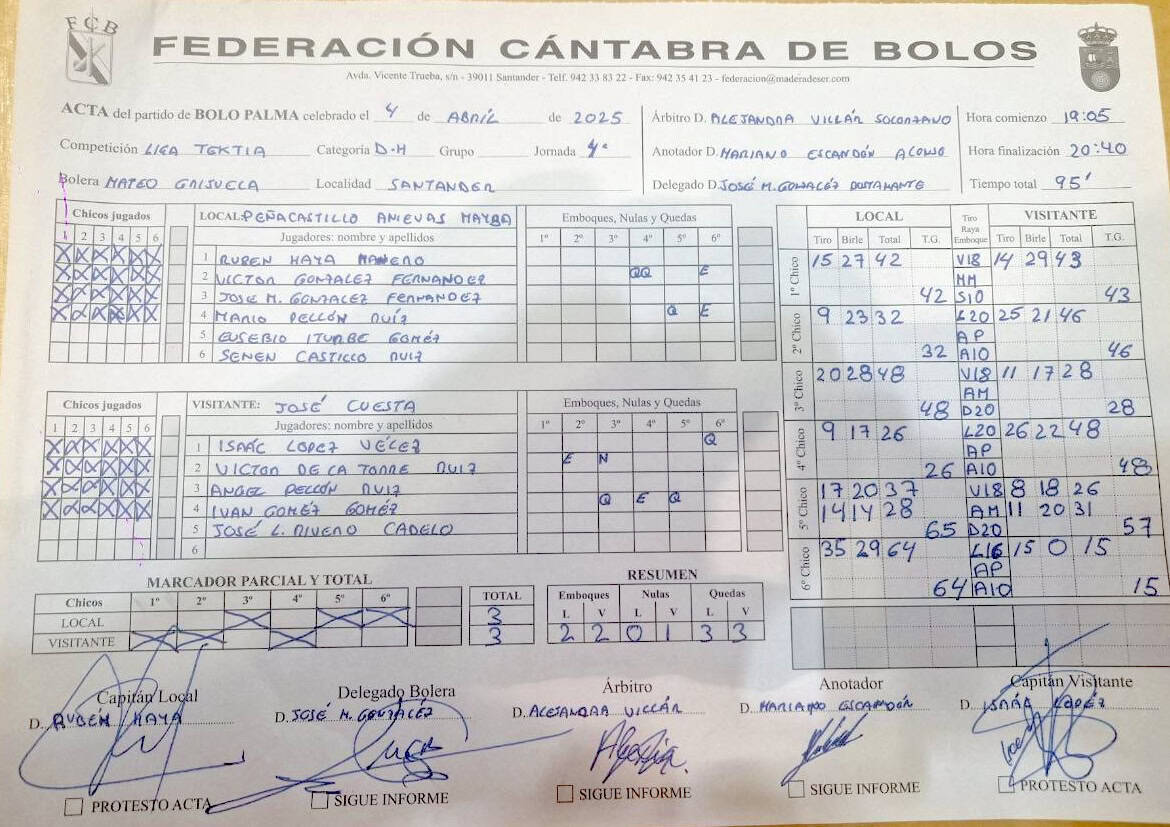 FCB
FEDERACIÓN CÁNTABRA DE BOLOS
Avda. Vicente Trueba, s/n - 39011 Santander - Telf. 942 33 83 22 - Fax: 942 35 41 23 - federacion@maderadeser.com
ACTA del partido de BOLO PALMA celebrado el 4 de ABRIL de 2025
Competición LIGA TEKTIA Categoría D-H Grupo Jornada 4ª
Bolera MATEO GRIJUELA Localidad SANTANDER
Árbitro D. ALEJANDRA VILLÁR SOLORZANO
Anotador D. MARIANO ESCANDÓN ALONSO
Delegado D. JOSÉ M. GONZALÉZ BUSTAMANTE
Hora comienzo 19:05
Hora finalización 20:40
Tiempo total 95'
Chicos jugados LOCAL: PEÑACASTILLO ANIEVAS MAYBA Emboques, Nulas y Quedas
1 2 3 4 5 6 Jugadores: nombre y apellidos 1º 2º 3º 4º 5º 6º
X X X X X X 1 RUBEN HAYA MANERO
X X X X X X 2 VICTOR GONZALEZ FERNANDEZ QQ E
X X X X X X 3 JOSE M. GONZALEZ FERNANDEZ
X X X X X X 4 MARIO PELLÓN RUÍZ Q E
5 EUSEBIO ITURBE GOMÉZ
6 SENEN CASTILLO RUIZ
Chicos jugados VISITANTE: JOSÉ CUESTA Emboques, Nulas y Quedas
1 2 3 4 5 6 Jugadores: nombre y apellidos 1º 2º 3º 4º 5º 6º
X X X X X X 1 ISAÁC LOPEZ VÉLEZ Q
X X X X X X 2 VICTOR DE LA TORRE RUIZ E N
X X X X X X 3 ANGEL PELLÓN RUIZ
X X X X X X 4 IVAN GOMÉZ GOMÉZ Q E Q
5 JOSÉ L. RIVERO CADELO
6
LOCAL Tiro Raya Emboque VISITANTE
Tiro Birle Total T.G. Tiro Birle Total T.G.
1º Chico 15 27 42 V18 14 29 43
MM
42 S10 43
2º Chico 9 23 32 L20 25 21 46
AP
32 A10 46
3º Chico 20 28 48 V18 11 17 28
AM
48 D20 28
4º Chico 9 17 26 L20 26 22 48
AP
26 A10 48
5º Chico 17 20 37 V18 8 18 26
14 14 28 AM 11 20 31
65 D20 57
6º Chico 35 29 64 L16 15 0 15
AP
64 A10 15
MARCADOR PARCIAL Y TOTAL
Chicos 1º 2º 3º 4º 5º 6º TOTAL
LOCAL 3
VISITANTE 3
RESUMEN
Emboques Nulas Quedas
L V L V L V
2 2 0 1 3 3
Capitán Local Delegado Bolera Árbitro Anotador Capitán Visitante
D. RUBÉN HAYA D. JOSÉ M. GONZÁLÉZ D. ALEJANDRA VILLÁR D. MARIANO ESCANDÓN D. ISAÁC LOPÉZ
PROTESTO ACTA SIGUE INFORME SIGUE INFORME SIGUE INFORME PROTESTO ACTA